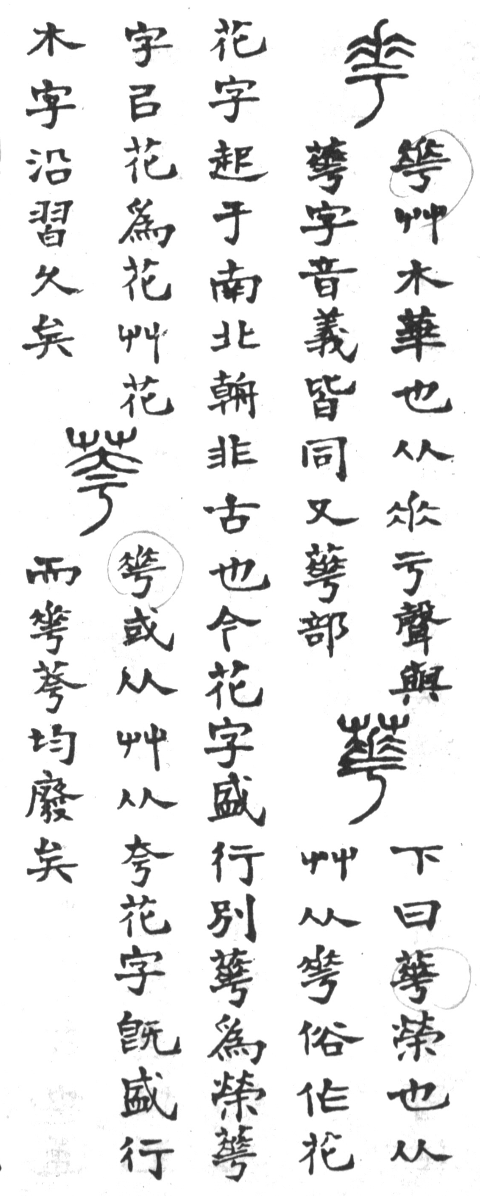 𠌶
𠌶艸木華也从𠂹亏聲與
蕐字音義皆同又蕐部
蕐
下曰蕐榮也从
艸从𠌶俗作花
花字起于南北朝非古也今花字盛行別蕐爲榮蕐
字㠯花爲花艸花
木字沿習久矣
荂
𠌶或从艸从夸花字既盛行
而𠌶荂均廢矣